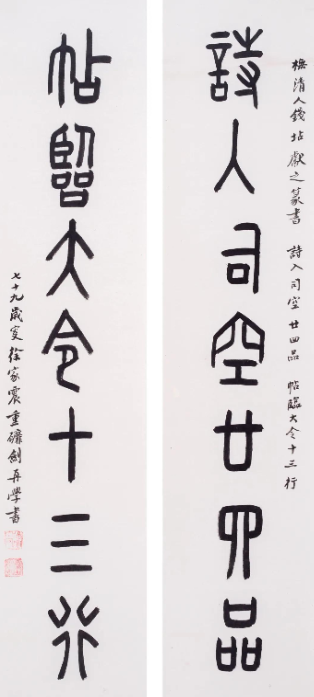 橅清人錢坫獻之篆書 詩入司空廿四品 帖臨大令十三行
詩入司空廿四品
帖臨大令十三行
七十九歲叟徐家震重劍再學書